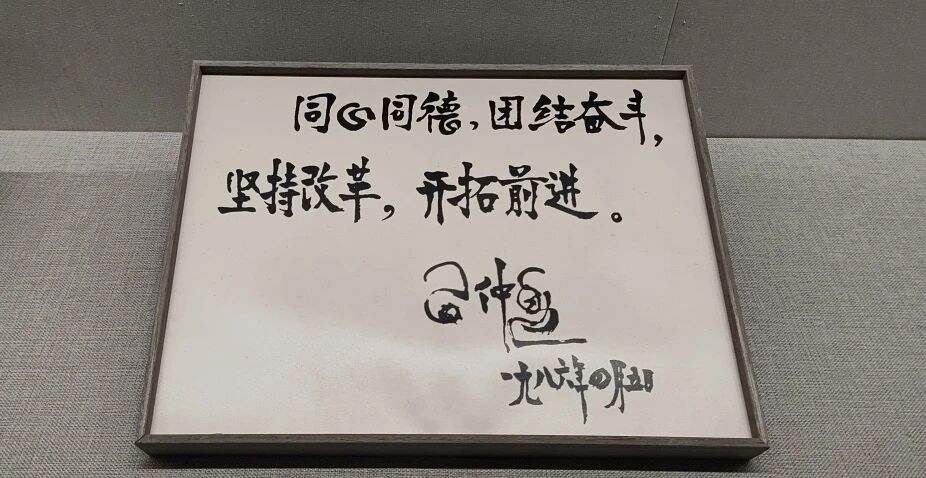 同心同德，团结奋斗，
坚持改革，开拓前进。
习仲勋
一九八六年四月五日